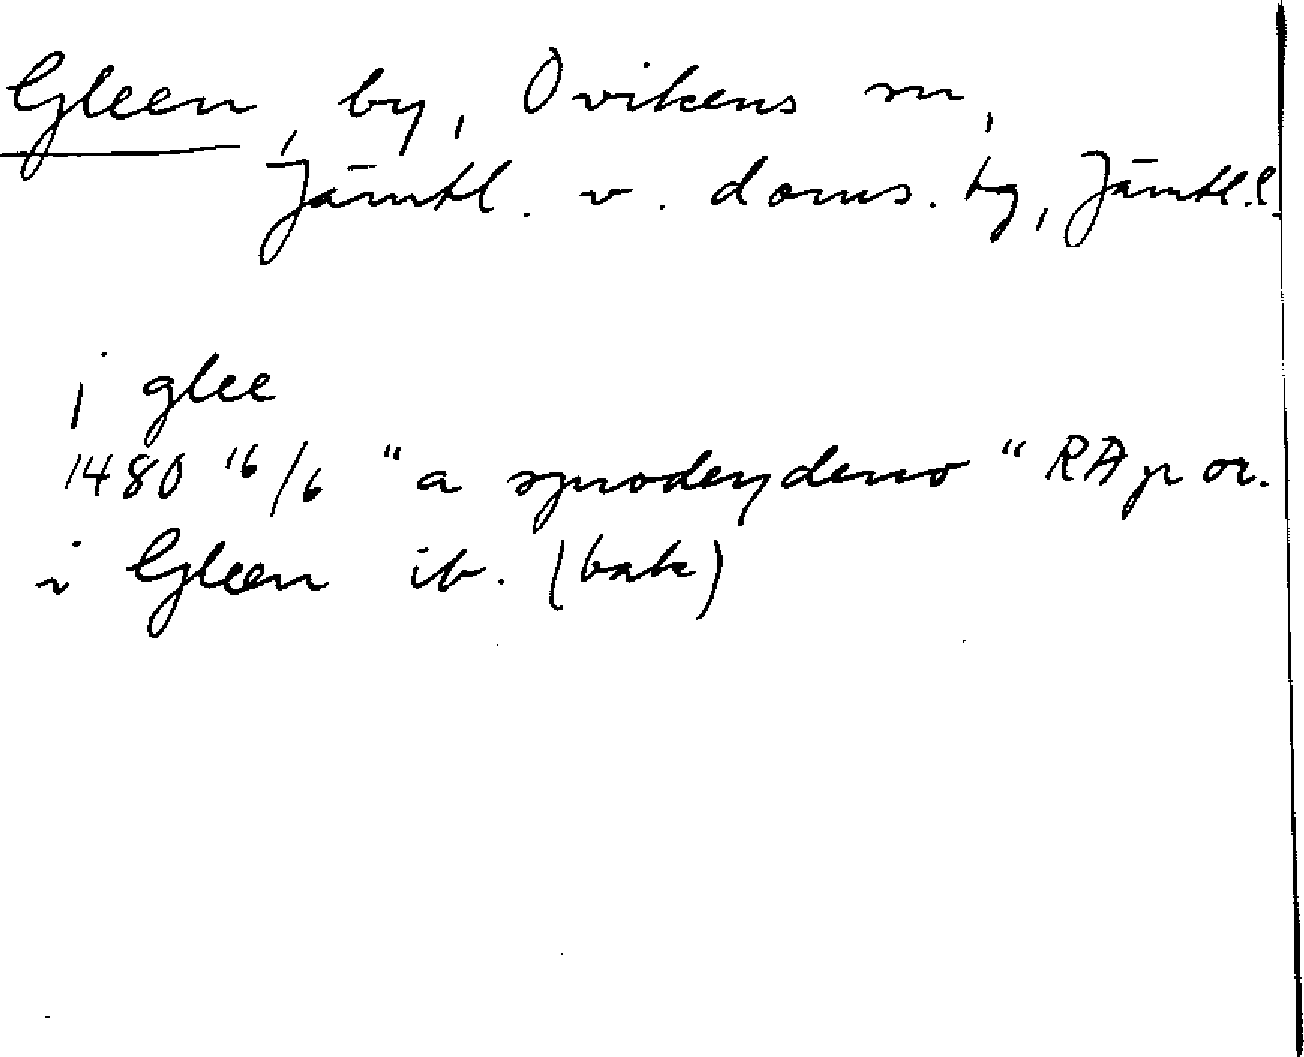 Gleen, by, Ovikens sn,
Jämtl. v. doms. tg, Jämtl.l.
j glee
1480 16/6 "a synodeydeno" RAp or.
i Gleen ib. (bak)